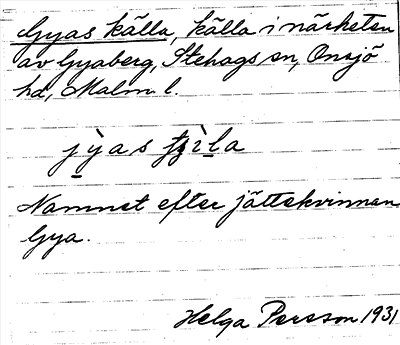 Gyas källa, källa i närheten
av Gyaberg, Stehags sn, Onsjö
hd, Malm l.
Namnet efter jättekvinnan
Gya.
Helga Persson 1931